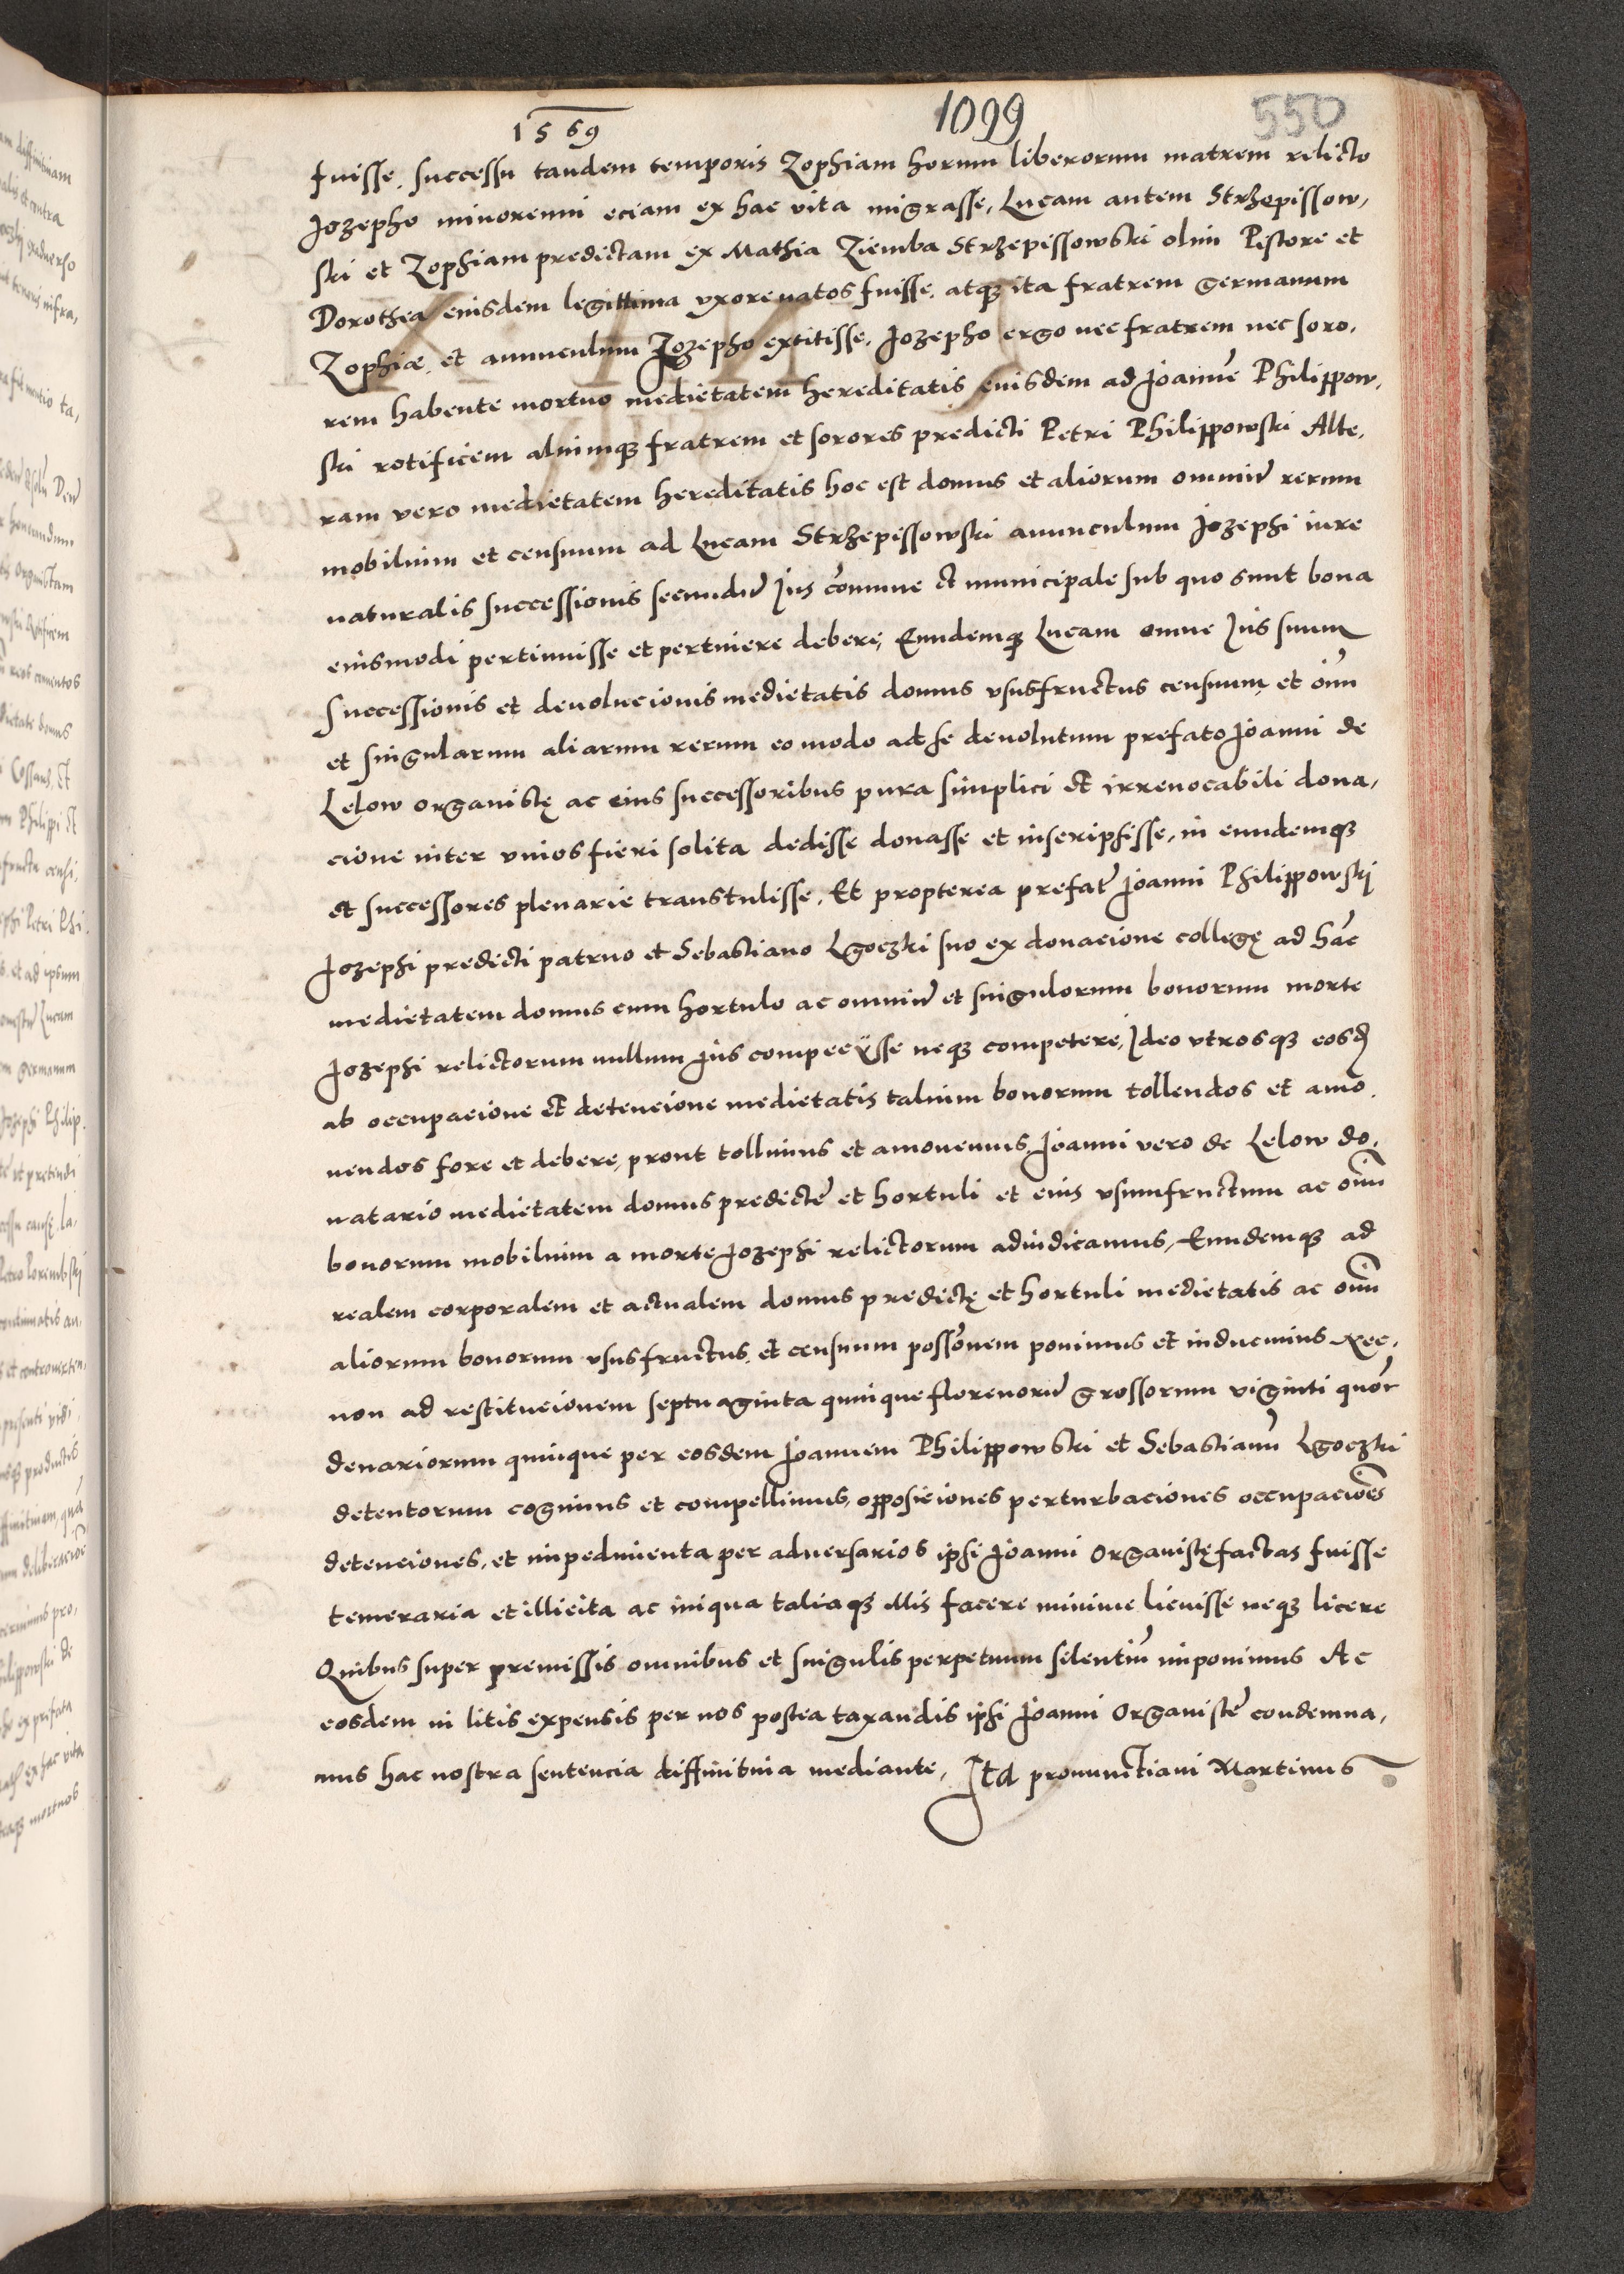 1569 1099 550
fuisse, successu tandem temporis Zophiam horum liberorum matrem relicto
Jozepho minorenni eciam ex hac vita migrasse, Lucam autem Strzepissow,
ski et Zophiam predictam ex Mathia Ziemba Strzepissowski olim Pistore et
Dorothea eiusdem legittima vxore natos fuisse, atq3 ita fratrem germanum
Zophiæ, et auunculum Jozepho extitisse, Jozepho ergo nec fratrem nec soro,
rem habente mortuo medietatem hereditatis eiusdem ad Joannē Philippow,
ski rotificem aliumq3 fratrem et sorores predicti Petri Philippowski Alte,
ram vero medietatem hereditatis hoc est domus et aliorum omniū rerum
mobilium et censuum ad Lucam Strzepissowski auunculum Jozephi iure
naturalis successionis secundū Jus cōmune et municipale sub quo sunt bona
eiusmodi pertinuisse et pertinere debere, Eundemq3 Lucam omne Jus suum
successionis et deuolucionis medietatis domus vsusfructus censuum, et oīm
et singularum aliarum rerum eo modo ad se deuolutum prefato Joanni de
Lelow organistę ac eius successoribus pura simplici et irreuocabili dona,
cione inter viuos fieri solita dedisse donasse et inscripsisse, in eundemq3
et successores plenarie transtulisse, Et propterea prefat Joanni Philippowski
Jozephi predicti patruo et Sebastiano Lgoczki suo ex donacione collegę ad hāc
medietatem domus cum hortulo ac omniū et singulorum bonorum morte
Jozephi relictorum nullum Jus compecÿsse neq3 competere, Ideo vtrosq3 eosd
ab occupacione et detencione medietatis talium bonorum tollendos et amo,
uendos fore et debere, prout tollimus et amouemus, Joanni vero de Lelow do,
natario medietatem domus predictę et hortuli et eius vsumfructum ac oīm
bonorum mobilium a morte Jozephi relictorum adiudicamus, Eundemq3 ad
realem corporalem et actualem domus predictę et hortuli medietatis ac oīm
aliorum bonorum vsusfructus, et censuum possōnem ponimus et inducimus Nec,
non ad restitucionem septuaginta quinque florenorū grossorum viginti quōr
denariorum quinque per eosdem Joannem Philippowski et Sebastianū Lgoczki
detentorum cogimus et compellimus, opposiciones perturbaciones occupaciōes
detenciones, et impedimenta per aduersarios ipsi Joanni Organistę factas fuisse
temeraria et illicita ac iniqua taliaq3 illis facere minime licuisse neq3 licere
Quibus super premissis omnibus et singulis perpetuum silentiū imponimus Ac
eosdem in litis expensis per nos postea taxandis ipsi Joanni Organistę condemna,
mus hac nostra sentencia diffinitiua mediante, Ita pronunctiaui Martinus